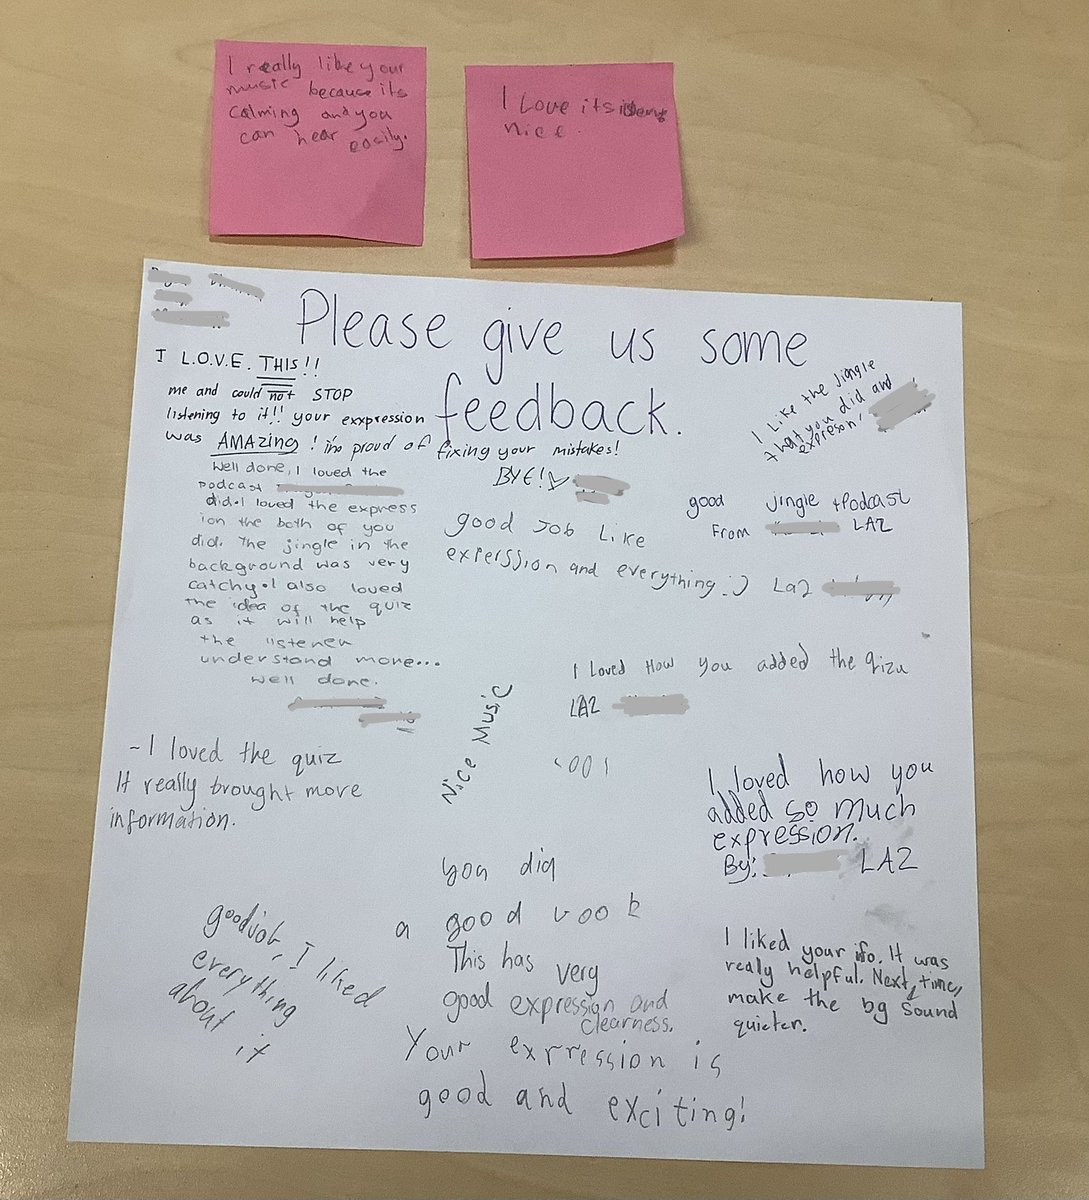 I really like your
music because its
calming and you
can hear easily.
I Love its
nice.
Please give us some
feedback.
I L.O.V.E. THIS!!
me and could not STOP
listening to it!! your exxpression
was AMAZING! im proud of fixing your mistakes!
BYE!
Well done, I loved the
podcast
did. I loved the express
ion the both of you
did. The jingle in the
background was very
catchy. I also loved
the idea of the quiz
as it will help
the listener
understand more...
well done.
I Like the Jingle
that you did and
expreson,
good Jingle + Podcast
From LA2
good JOB Like
experssion and everything :) La2
I Loved How you added the qizu
LA2
Nice Music
~ I loved the quiz
It really brought more
information.
I loved how you
added so much
expression.
By: LA2
you did
a good
This has very
good expression and
clearness.
Your exrression is
good and exciting!
goodjob, I liked
everything
about it
I liked your ifo. It was
really helpful. Next time,
make the bg sound
quieter.